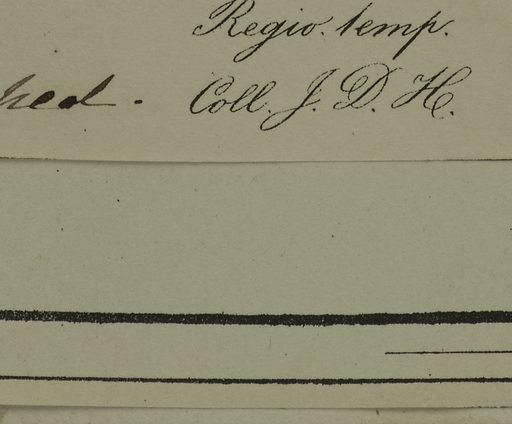 Regio. temp.
Coll. J. D. H.